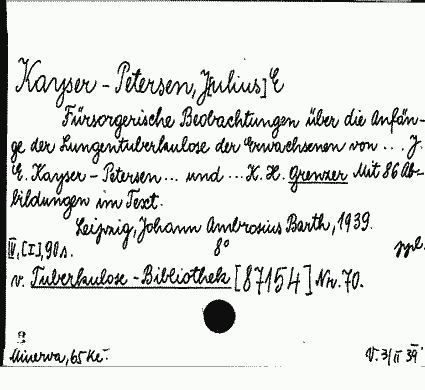 Kayser-Petersen, J[ulius] E
Fürsorgerische Beobachtungen über die Anfän-
ge der Lungentuberkulose der Erwachsenen von ... J.
E. Kayser-Petersen ... und ... K. H. Grenzer Mit 86 Ab-
bildungen im Text.
Leipzig, Johann Ambrosius Barth, 1939.
IV, [I], 90 s. 8°
v. Tuberkulose-Bibliothek [87154] Nr. 70.
Minerva, 65 Kč. V. 3/II 39